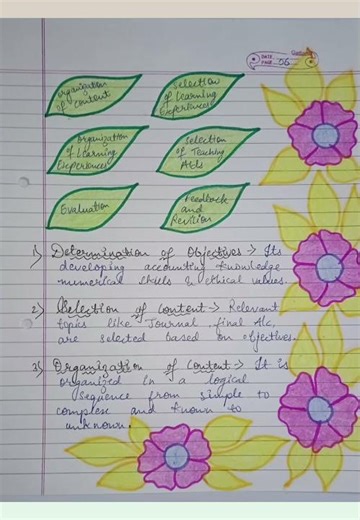 DATE
PAGE 06
Organization
of content
Selection
of Learning
Experiences
Organization
of Learning
Experiences
Selection
of Teaching
Aids
Evaluation
Feedback
and
Revision
1) Determination of Objectives → Its
developing accounting knowledge
numerical skills & ethical values.
2) Selection of content → Relevant
topics like Journal, final A/c,
are selected based on objectives.
3) Organization of content → It is
organized in a logical
sequence from simple to
complex and known to
unknown.